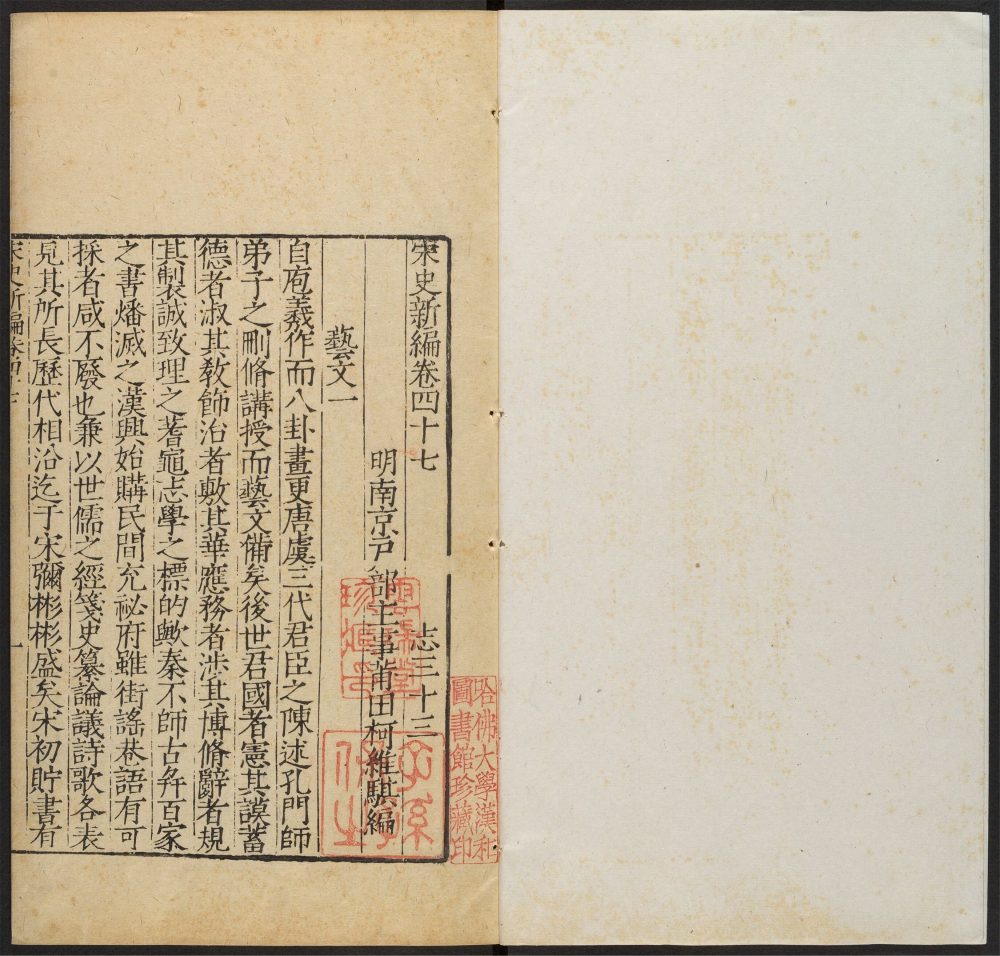 宋史新編卷四十七 志三十三
明南京戸部主事莆田柯維騏編
藝文一
自庖羲作而八卦畫更唐虞三代君臣之陳述孔門師
弟子之刪脩講授而藝文備矣後世君國者憲其謨蓄
德者淑其教飾治者敷其華應務者涉其博脩辭者規
其製誠致理之蓍龜志學之標的歟秦不師古弁百家
之書燔滅之漢興始購民間充祕府雖街謠巷語有可
採者咸不廢也兼以世儒之經箋史纂論議詩歌各表
見其所長歷代相沿迄于宋彌彬彬盛矣宋初貯書有
宋史新編卷四十七 一
哈佛大學漢和
圖書館珍藏印